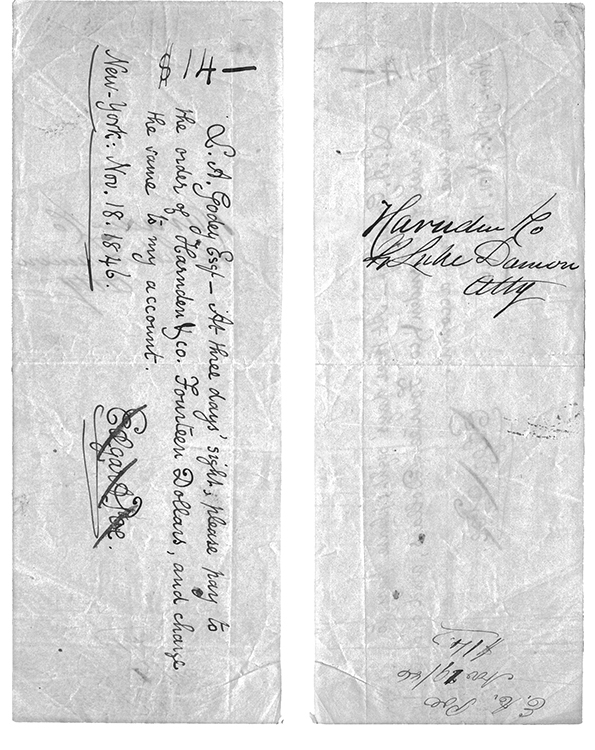 $14—
L. A. Godey Esqr — At three days' sight, please pay to
the order of Harnden & Co. Fourteen Dollars, and charge
the same to my account.
Edgar A Poe.
New-York: Nov. 18. 1846.
Harnden & Co
Luke Damon
Atty
E. A. Poe
Nov 19/46
$14